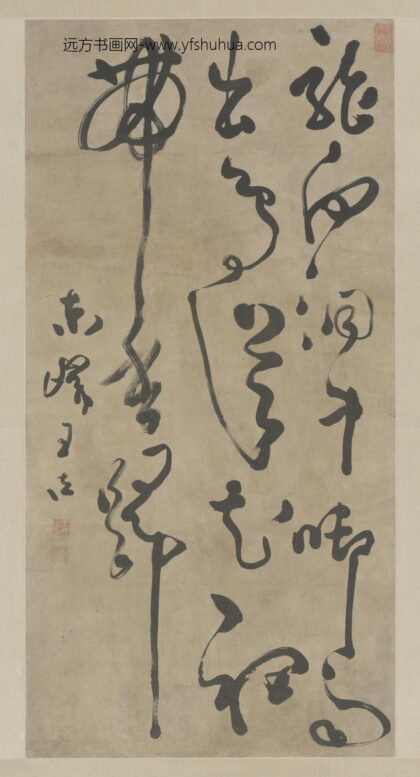 远方书画网-www.yfshuhua.com
龍向洞中啣雨
出鳥從花裡
帶香歸
王